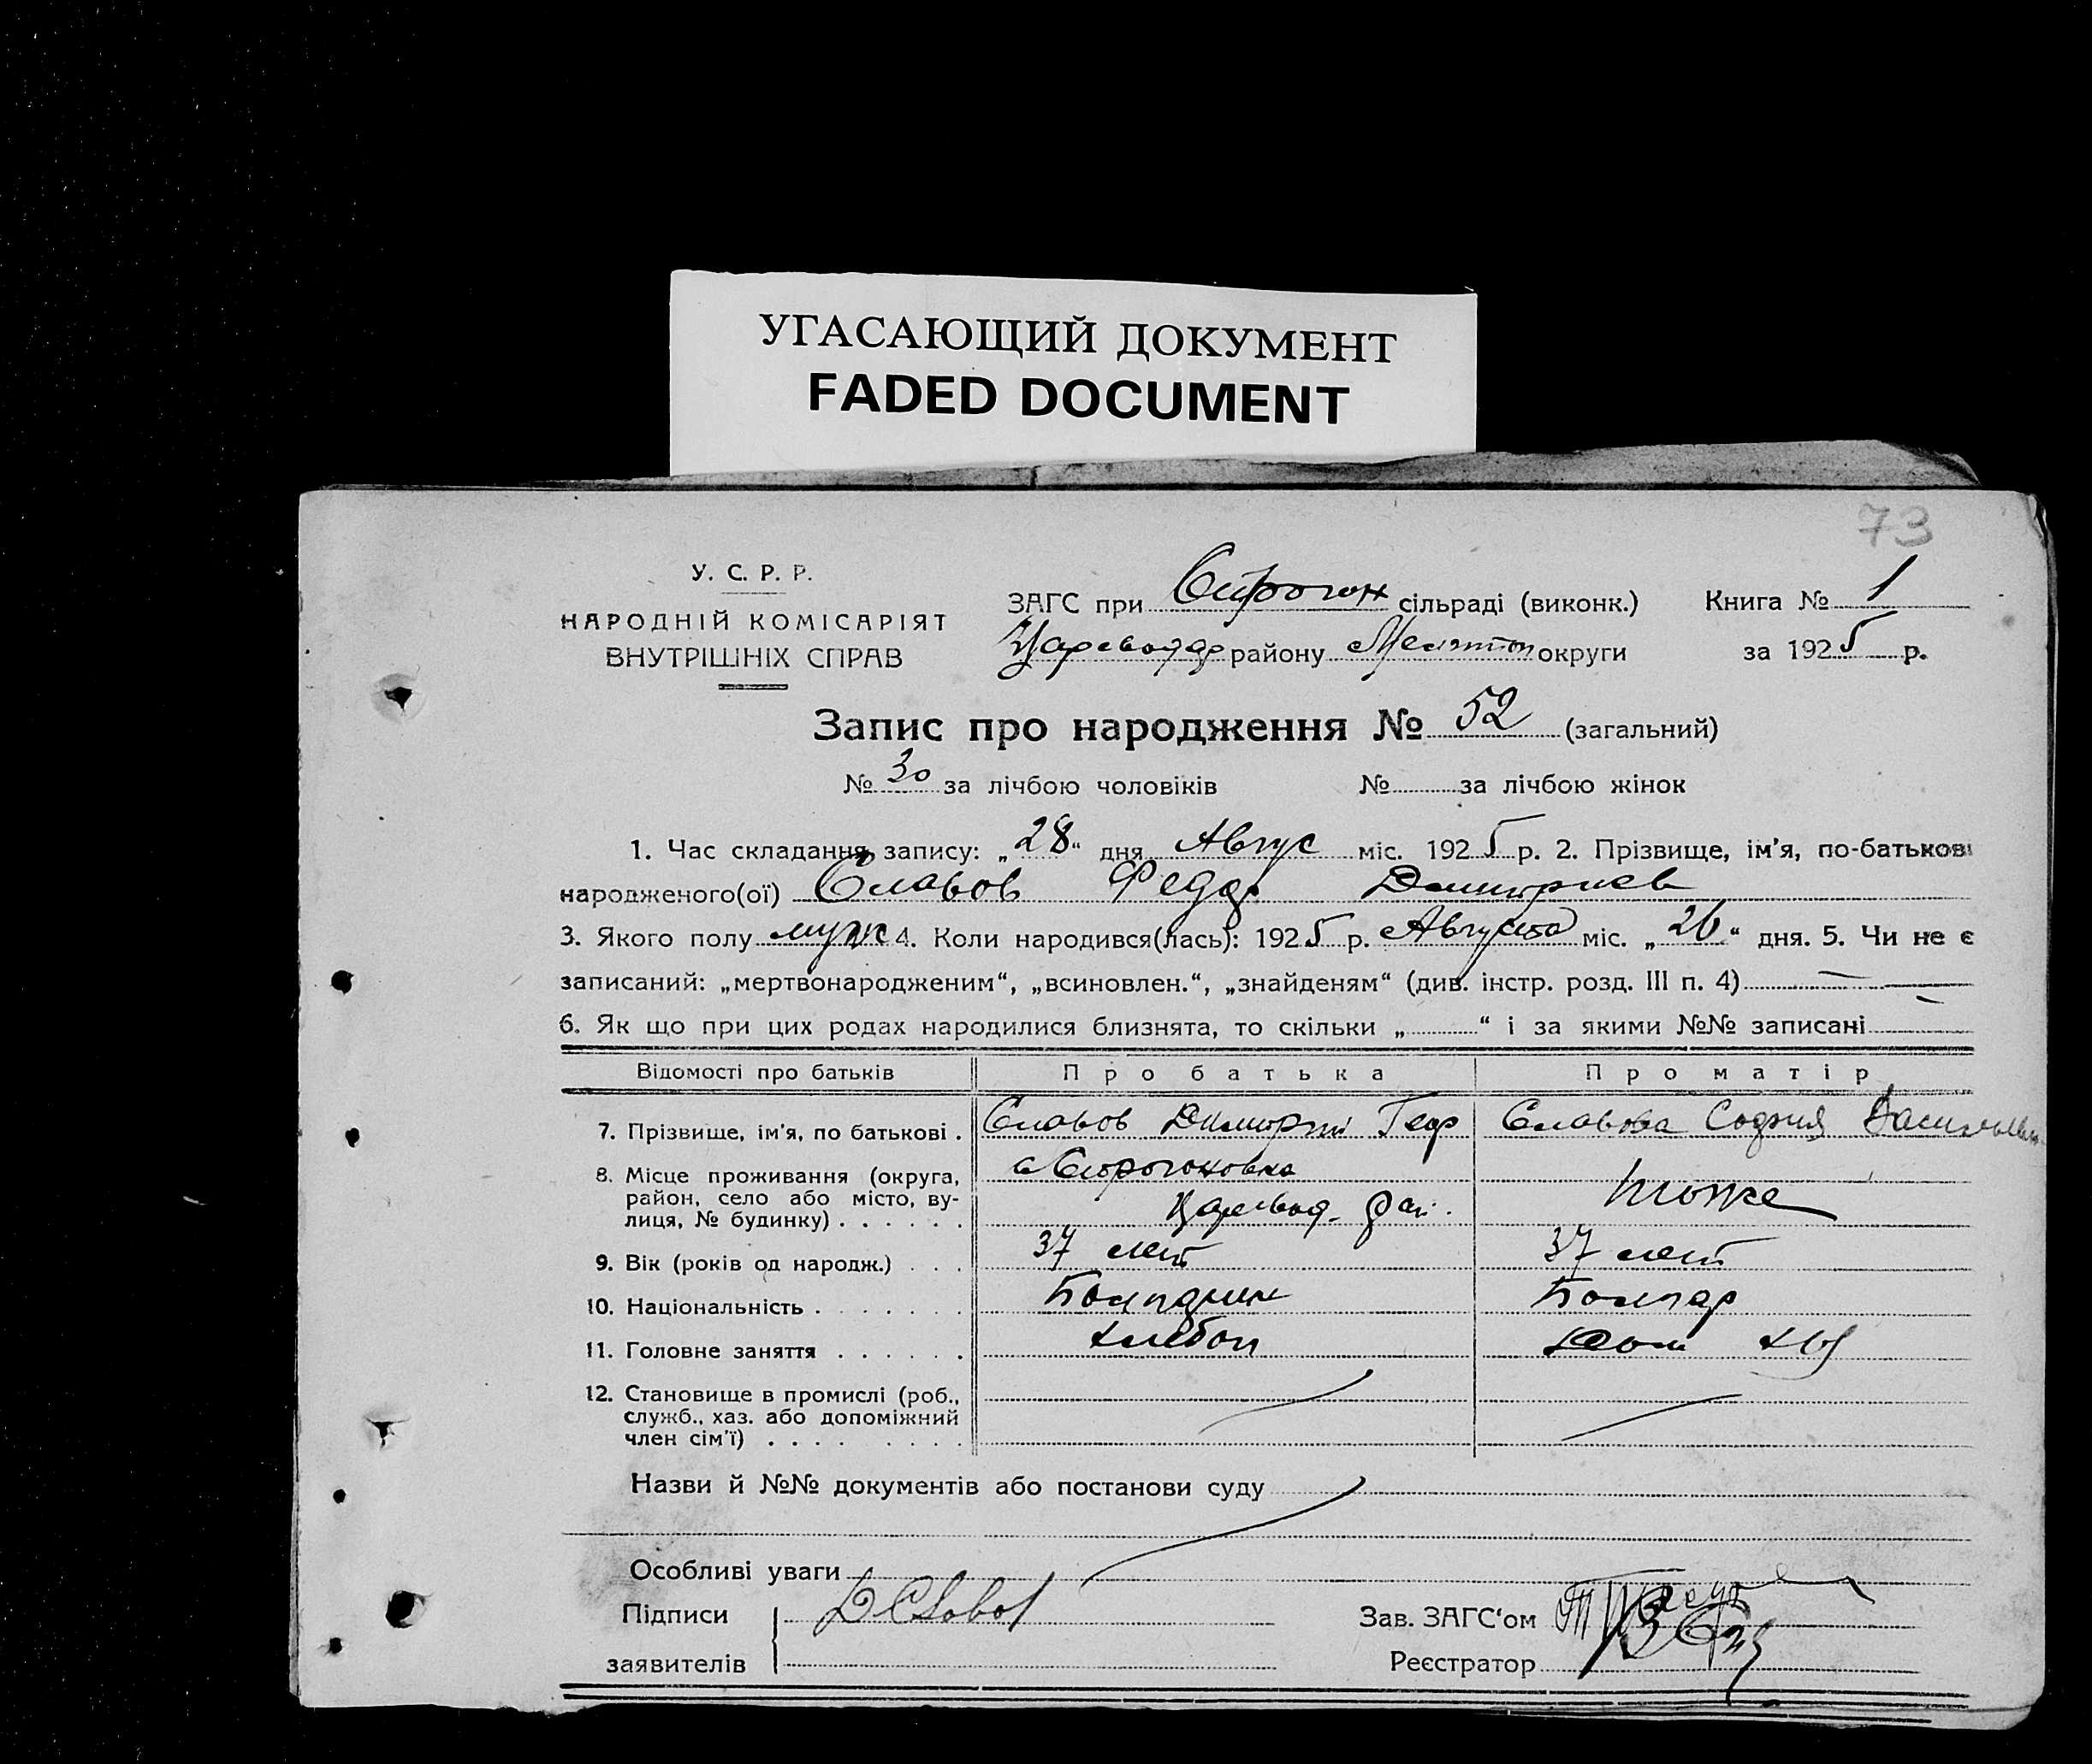 УГАСАЮЩИЙ ДОКУМЕНТ
FADED DOCUMENT
73
У. С. Р. Р.
НАРОДНІЙ КОМІСАРІЯТ
ВНУТРІШНІХ СПРАВ
ЗАГС при Строгон сільраді (виконк.) Книга № 1
Цареводар району Мелитоп округи за 1925 р.
Запис про народження № 52 (загальний)
№ 30 за лічбою чоловіків № за лічбою жінок
1. Час складання запису: „28“ дня Авгус міс. 1925 р. 2. Прізвище, ім’я, по-батькові
народженого(ої) Славов Федор Дмитриев
3. Якого полу муж 4. Коли народився(лась): 1925 р. Августа міс. „26“ дня. 5. Чи не є
записаний: „мертвонародженим“, „всиновлен.“, „знайденям“ (див. інстр. розд. III п. 4) —
6. Як що при цих родах народилися близнята, то скільки „ “ і за якими №№ записані
Відомості про батьків Про батька Про матір
7. Прізвище, ім’я, по батькові . Славов Дмитрий Геор Славова София Васильевн
8. Місце проживання (округа,
район, село або місто, ву-
лиця, № будинку) . . . . . .
с Строгоновка
Царевод. рай. тоже
9. Вік (років од народж.) . . . 37 лет 37 лет
10. Національність . . . . . . . Болгарин Болгар
11. Головне заняття . . . . . . хлебоп Дом хоз
12. Становище в промислі (роб.,
служб., хаз. або допоміжний
член сім’ї) . . . . . . . . .
Назви й №№ документів або постанови суду
Особливі уваги
Підписи D Slavov Зав. ЗАГС‘ом
заявителів Реєстратор